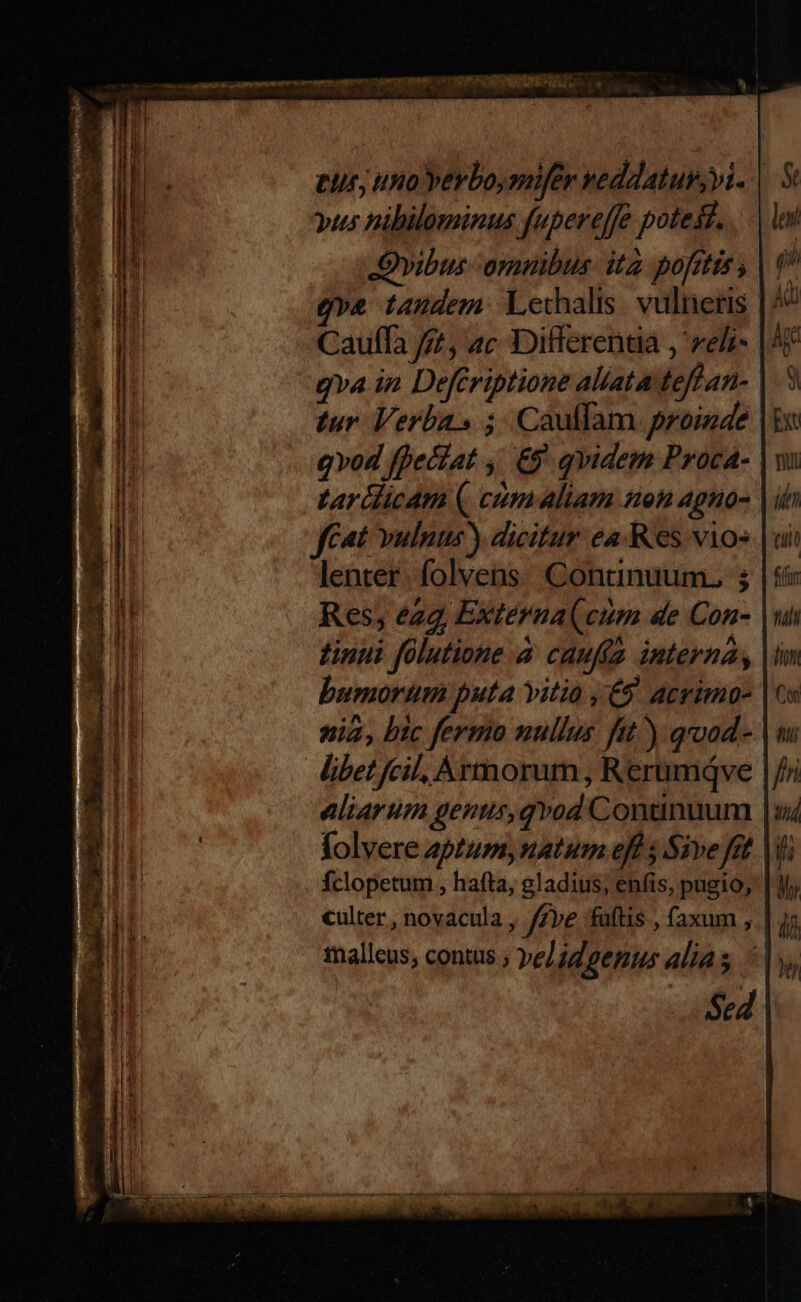 tur, uno verbo, miſer reddatur, vi-
vus nihilominus ſupereſſe poteſt.
Qvibus omnibus ità poſitis,
qvæ tandem Lethalis vulneris
Cauſſa ſit, ac Differentia, reli-
qva in Deſcriptione allata teſtan-
tur Verba; Cauſſam proinde
qvod ſpectat, & qvidem Proca-
tarcticam (cùm aliam non agno-
ſcat vulnus) dicitur ea Res vio-
lenter ſolvens Continuum;
Res, eáq; Externa (cùm de Con-
tinui ſolutione à cauſſâ internâ,
humorum puta vitio, & acrimo-
niâ, hìc ſermo nullus ſit) qvod-
libet ſcil. Armorum, Rerumqve
aliarum genus, qvod Continuum
ſolvere aptum, natum eſt; Sive ſit
ſclopetum, haſta, gladius, enſis, pugio,
culter, novacula, ſive fuſtis, ſaxum,
malleus, contus, vel id genus alia;
Sed